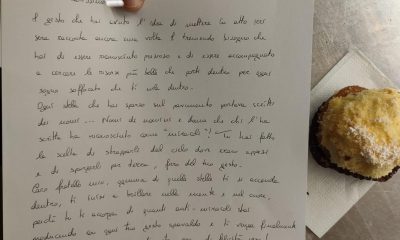 Il gesto che hai avuto l'idea di mettere in atto ieri
sera racconta ancora una volta il tremendo bisogno che
hai di essere riconosciuto prezioso e di essere accompagnato
a cercare le risorse più belle che porti dentro per ogni
sogno soffocato che ti urla dentro.
Ogni stella che hai sparso sul pavimento portava scritto
dei nomi... Nomi di uomini e donne che chi l'ha
scritta ha riconosciuto come "miracoli"! Tu hai fatto
la scelta di strapparli dal cielo dove erano appesi
e di spargerli per terra, fieri del tuo gesto.
Caro fratello mio, ognuna di quelle stelle ti si accenda
dentro, ti inizi a brillare nella mente e nel cuore,
perché tu ti accorga di quanti anti-miracoli stai
producendo con ogni tuo gesto spavaldo e ti venga finalmente